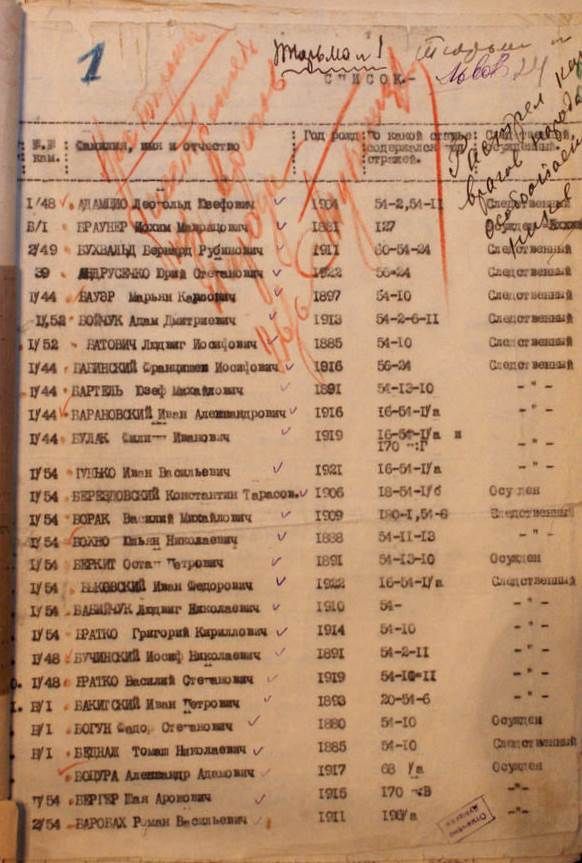 1
Тюрьма №1
Тюрьмы
Львов 24
СПИСОК.
Расстрел как
врагов народа
№.№ кам. Фамилия, имя и отчество Год рожд. По какой статье содержался под стражей. Следственный осужденный.
1/48 АДАМЕНКО Леопольд Юзефович 1904 54-2,54-11 Следственный
Б/1 БРАУНЕР Иохим Маврицович 1881 127 Осужден
2/49 БУХВАЛЬД Бернард Рубинович 1911 60-54-24 Следственный
39 АНДРУСЕЧКО Юрий Степанович 1922 56-24 Следственный
1/44 БАУЭР Марьян Карлович 1897 54-10 Следственный
1/52 БОЙЧУК Адам Дмитриевич 1913 54-2-6-11 Следственный
1/52 БАТОВИЧ Людвиг Иосифович 1885 54-10 Следственный
1/44 БАБИНСКИЙ Францишек Иосифович 1916 56-24 Следственный
1/44 БАРТЕЛЬ Юзеф Михайлович 1891 54-13-10 -"-
1/44 БАРАНОВСКИЙ Иван Александрович 1916 16-54-1/а -"-
1/44 БУЛАК Иванович 1919 16-54-1/а и -"-
170
1/54 Иван Васильевич 1921 16-54-1/а -"-
1/54 БЕРЕЗЛОВСКИЙ Константин Тарасов. 1906 18-54-1/б Осужден
1/54 БОРАК Василий Михайлович 1909 180-1,54-6 Следственный
1/54 БОХНО Юльян Николаевич 1888 54-11-13 -"-
1/54 БЕРКИТ Остап Петрович 1891 54-13-10 Осужден
1/54 БЫКОВСКИЙ Иван Федорович 1922 16-54-1/а Следственный
1/54 БАБИЙЧУК Людвиг Николаевич 1910 54- -"-
1/54 БРАТКО Григорий Кириллович 1914 54-10 -"-
1/48 БУЧИНСКИЙ Иосиф Николаевич 1891 54-2-11 -"-
1/48 БРАТКО Василий Степанович 1919 54-10-11 -"-
Б/1 БАКИТСКИЙ Иван Петрович 1893 20-54-6 -"-
Б/1 БОГУН Федор Степанович 1880 54-10 Осужден
Б/1 БЕДНАЖ Томаш Николаевич 1885 54-10 Следственный
БОЦУРА Александр Адамович 1917 68 /а Осужден
1/54 БЕРГЕР Шая Аронович 1915 170 -"-
2/54 БАРОБАХ Роман Васильевич 1911 196/а -"-